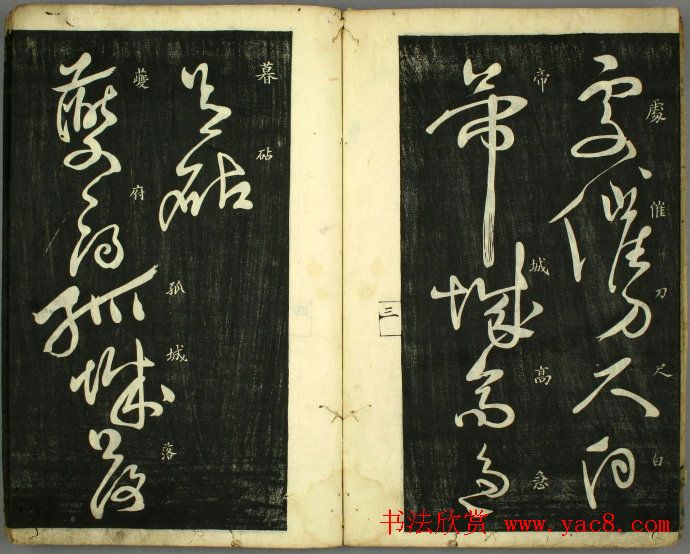 處催刀尺白
帝城高急
三
暮砧
夔府孤城落
书法欣赏 www.yac8.com